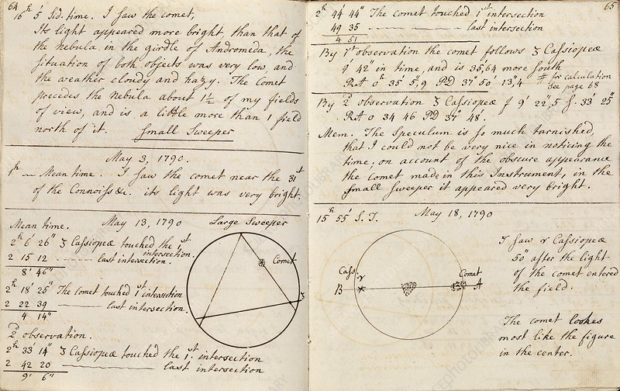 64
16h 5' Sid time. I saw the comet,
Its light appeared more bright, than that of
the nebula in the girdle of Andromeda, the
situation of both objects was very low and
the weather cloudy and hazy. The Comet
precedes the nebula about 1½ of my fields
of view, and is a little more than 1 field
north of it. Small Sweeper
May 3, 1790.
Mean time. I saw the comet near the 31st
of the Connoiss &c. its light was very bright.
Mean time. May 13, 1790 Large Sweeper
2h 6' 26" ʒ Cassiopeæ touched the 1st intersection,
2 15 12 last intersection.
8' 46"
2h 18' 25" The comet touched 1st intersection
2 22 39 last intersection.
4 14"
2d observation.
2h 33' 14" ʒ Cassiopeæ touched the 1st intersection
2 42 20 last intersection
9' 6"
Comet
ʒ
65
2h 44' 44" The Comet touched 1st intersection
49 35 last intersection
4 51
By 1st observation the comet follows ʒ Cassiopeæ
9' 42" in time, and is 36',64 more south
RA 0h 35' 5",9 PD 37° 50' 13",4 # for calculation
see page 68
By 2d observation ʒ Cassiopeæ f 9' 22",5 S. 33' 25"
RA 0 34 46 PD 37° 48'.
Mem. The Speculum is so much tarnished,
that I could not be very nice in noticing the
time, on account of the obscure appearance
the comet made in this Instrument, in the
Small Sweeper it appeared very bright.
15h 55' S.T. May 18, 1790
Cass γ
B
Comet
A
I saw γ Cassiopeæ
50" after the light
of the comet entered
the field.
The comet looks
most like the figure
in the center.